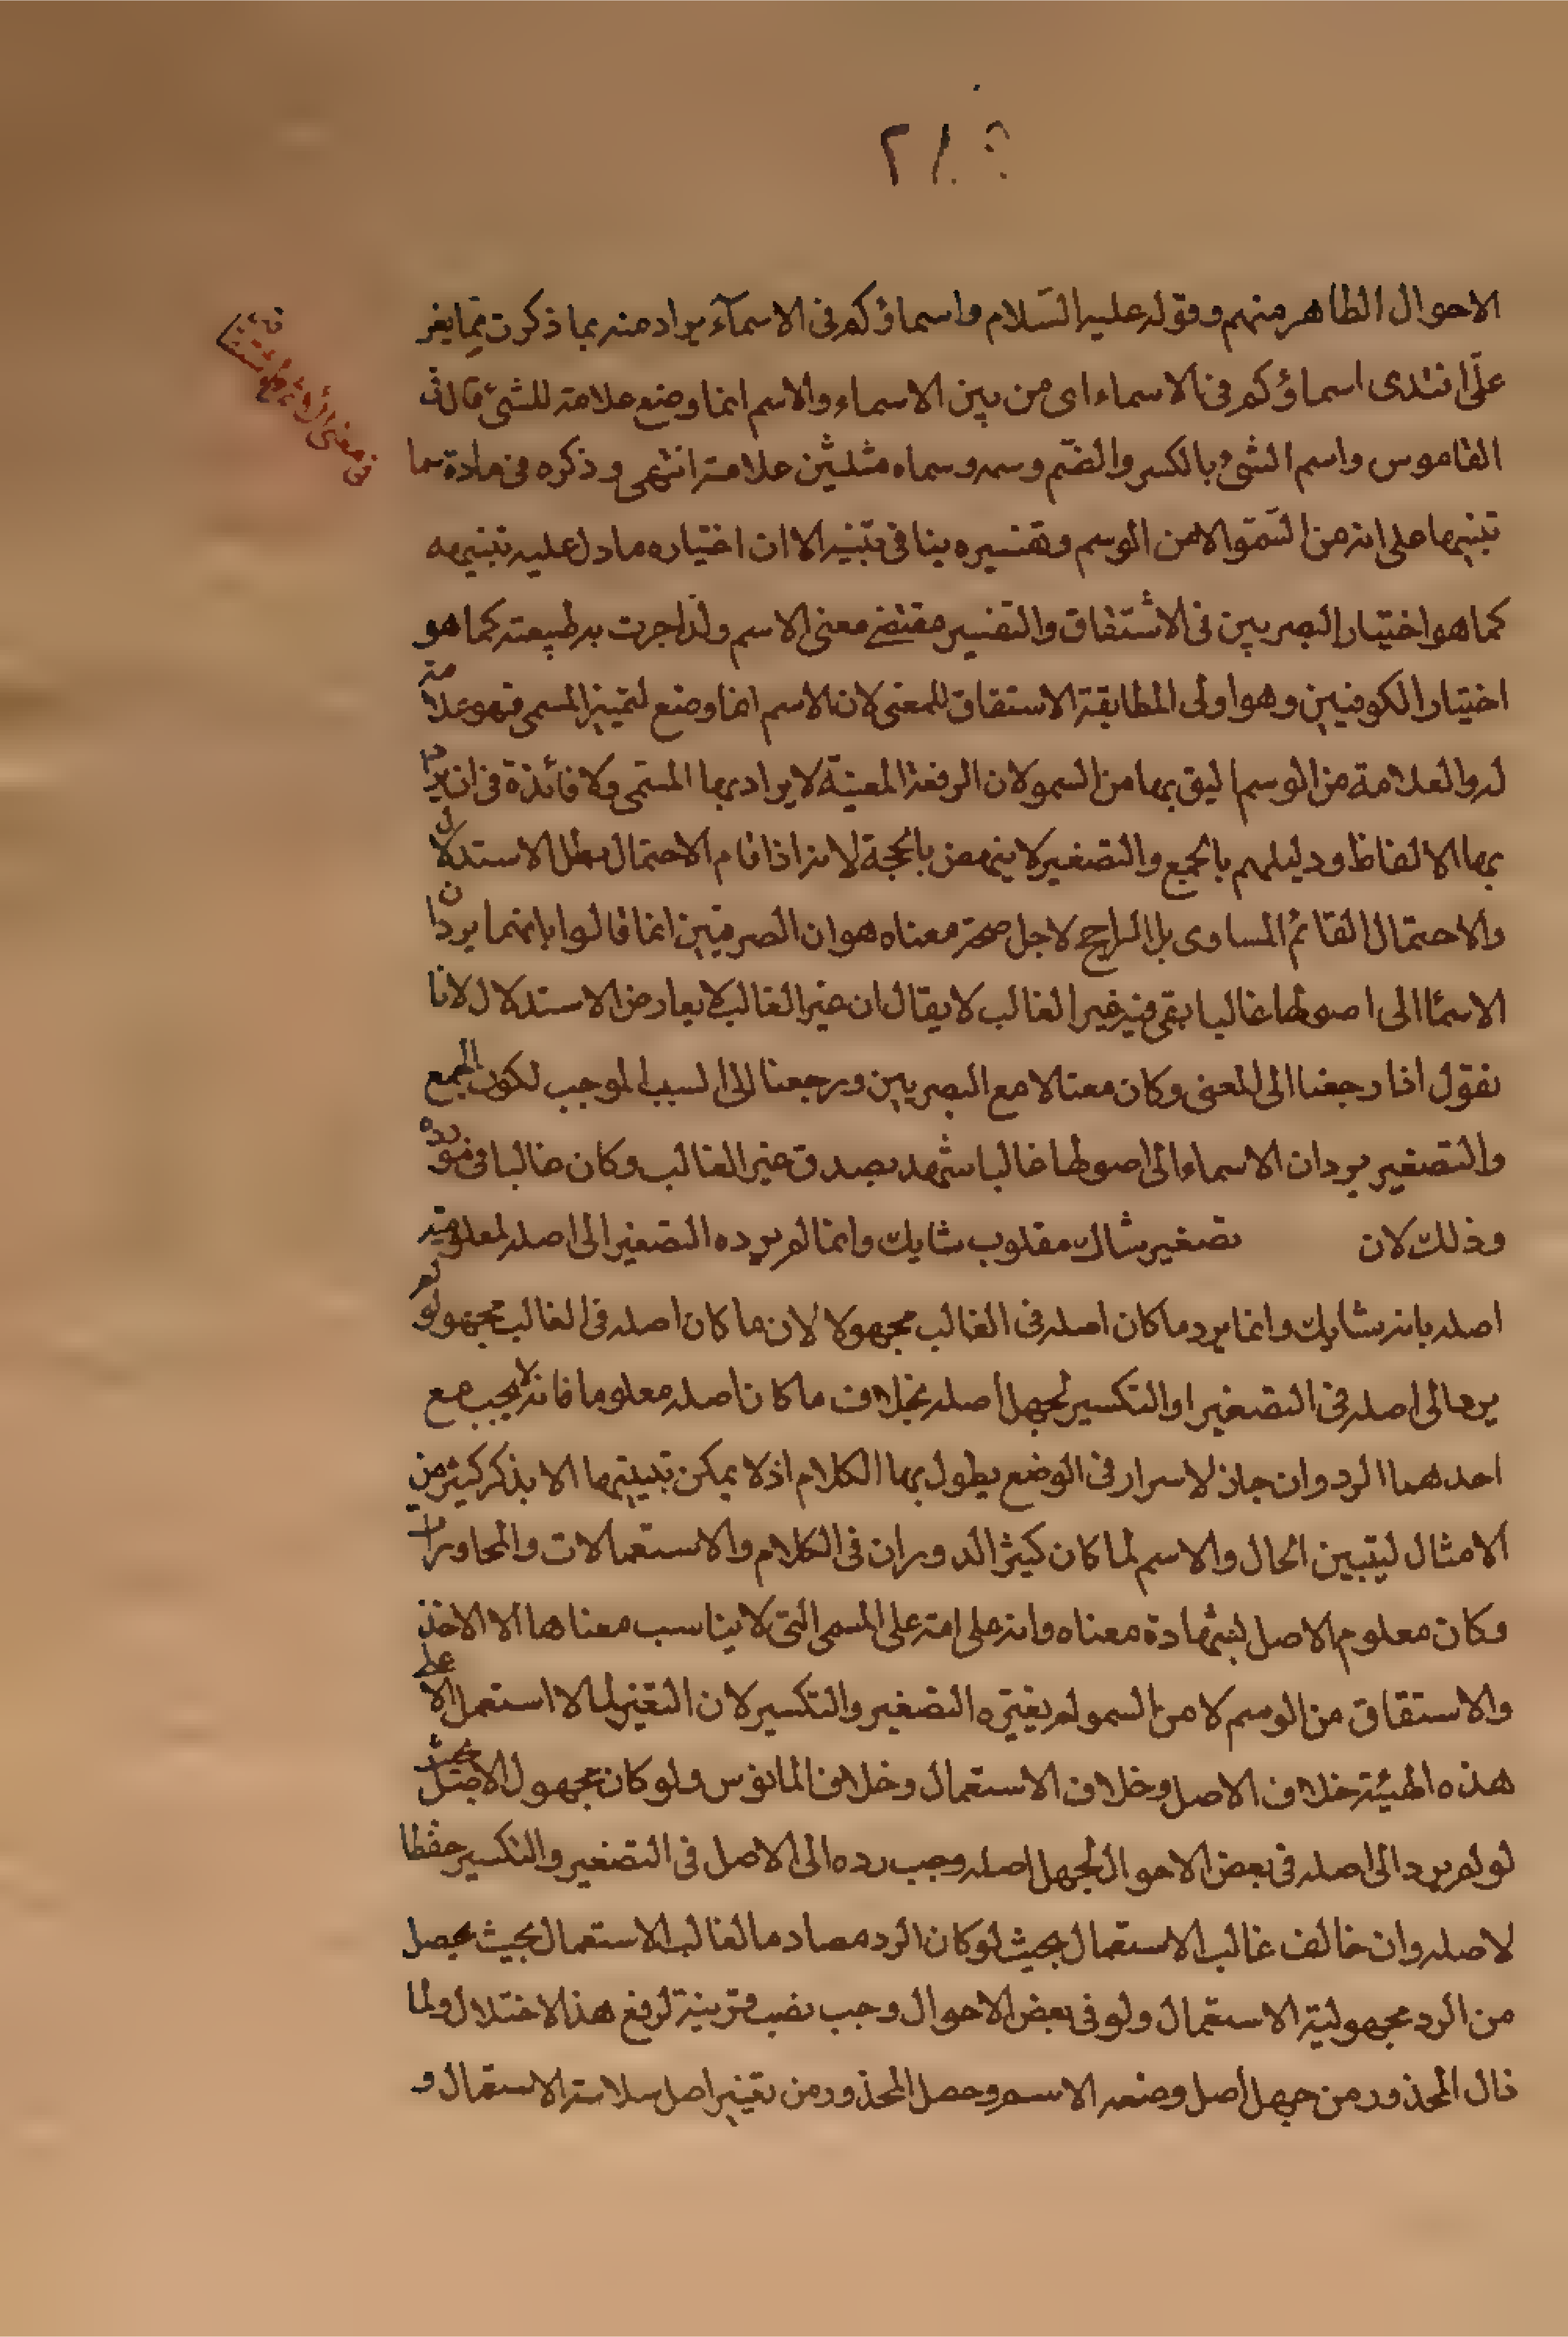 الاحوال الظاهر منهم وقوله عليه السّلام واسماؤكم فى الاسمآء يراد منه بما ذكرت بما يغر
علّى انتدى اسماؤكم فى الاسماء اى من بين الاسماء والاسم انما وضع علامة للشئ قال فى
القاموس واسم الشئ بالكسر والضّم وسمه وسماه مثلثين علامته انتهى وذكره فى مادة سما
تنبيها على انه من السّمو لا من الوسم وتفسيره ينافى تنبيه الا ان اختياره ما دل عليه تنبيهه
كما هو اختيار البصريين فى الاشتقاق والتفسير مقتضى معنى الاسم ولذا جرت به طبيعته كما هو
اختيار الكوفيين وهو اولى المطابقة الاستقاق للمعنى لان الاسم انما وضع لتمييز المسمى فهو علامة
له والعلامة من الوسم اليق بها من السمو لان الرفعة المعينة لا يراد بها المسمى ولا فائدة فى ان يراد
بها الالفاظ ودليلهم بالجمع والتصغير لا ينهض بالحجة لانه اذا قام الاحتمال بطل الاستدلال
والاحتمال القائم المساوى بل الراجح لاجل صحة معناه هو ان الصرفيين انما قالوا بانهما يردان
الاسما الى اصولها غالبا بقى فيه غير الغالب لا يقال ان غير الغالب لا يعارض الاستدلال لانا
نقول اذا رجعنا الى المعنى وكان معنا لا مع البصريين ورجعنا الى السبب الموجب لكون الجمع
والتصغير يردان الاسماء الى اصولها غالبا شهد بصدق غير الغالب وكان غالبا فى مورده
وذلك لان تصغير شاك مقلوب شايك وانما لم يرده التصغير الى اصله لمعلومية
اصله بانه شايك وانما يرد ما كان اصله فى الغالب مجهولا لان ما كان اصله فى الغالب مجهولا لو لم
يرد الى اصله فى التصغير او التكسير لجهل اصله بخلاف ما كان اصله معلوما فانه لا يجب مع
احدهما الرد وان جاز لاسرار فى الوضع يطول بها الكلام اذ لا يمكن تبيينها الا بذكر كثير من
الامثال ليتبين الحال والاسم لما كان كثير الدوران فى الكلام والاستعمالات والمحاورات
وكان معلوم الاصل لشهادة معناه وانه على امة على المسمى التى لا يناسب معناها الا الاخذ
والاستقاق من الوسم لا من السمو لم يغيره التصغير والتكسير لان التغير لما لا استعمل الا على
هذه الهيئة خلاف الاصل وخلاف الاستعمال وخلاف المانوس ولو كان مجهول الاصل بحيث
لو لم يرد الى اصله فى بعض الاحوال لجهل اصله وجب رده الى الاصل فى التصغير والتكسير حفظا
لاصله وان خالف غالب الاستعمال بحيث لو كان الرد مصادما لغالب الاستعمال بحيث يحصل
من الرد مجهولية الاستعمال ولو فى بعض الاحوال وجب نصب قرينة لرفع هذا الاختلال ولما
خال المحذور من جهل اصل وضعه الاسم وحصل المحذور من تغيير اصل سلاسة الاستعمال و